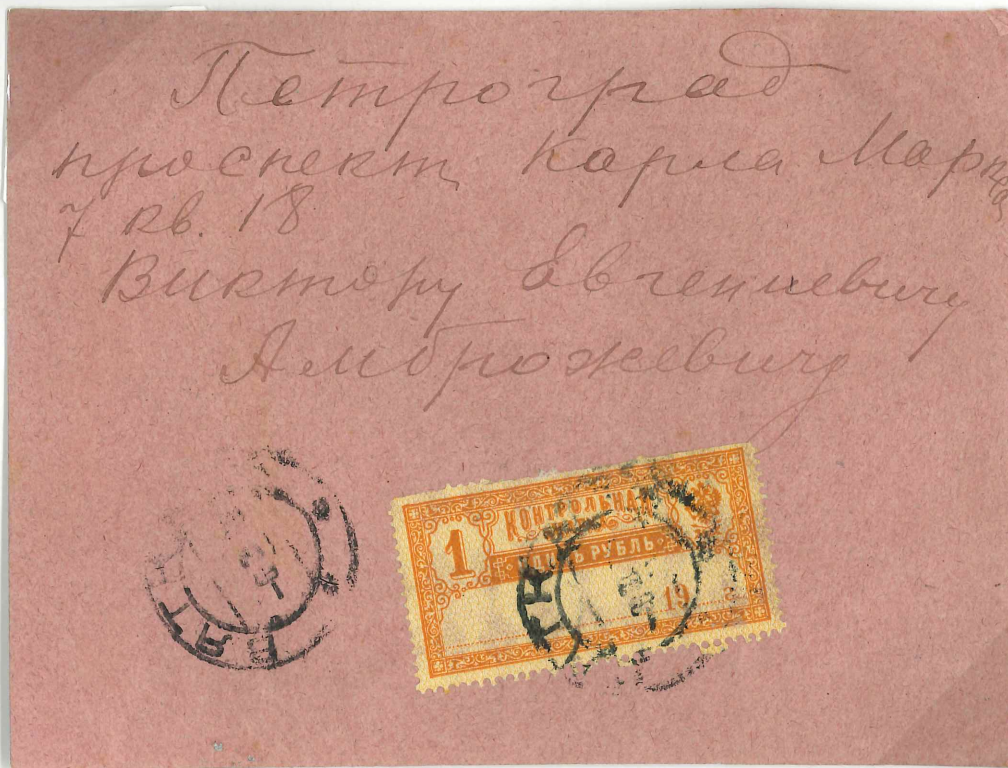 Петроград
проспект Карла Маркса
7 кв. 18
Виктору Евгениевичу
Амброжевичу
1 КОНТРОЛЬНАЯ
ОДИНЪ РУБЛЬ
19
ВЯТКА